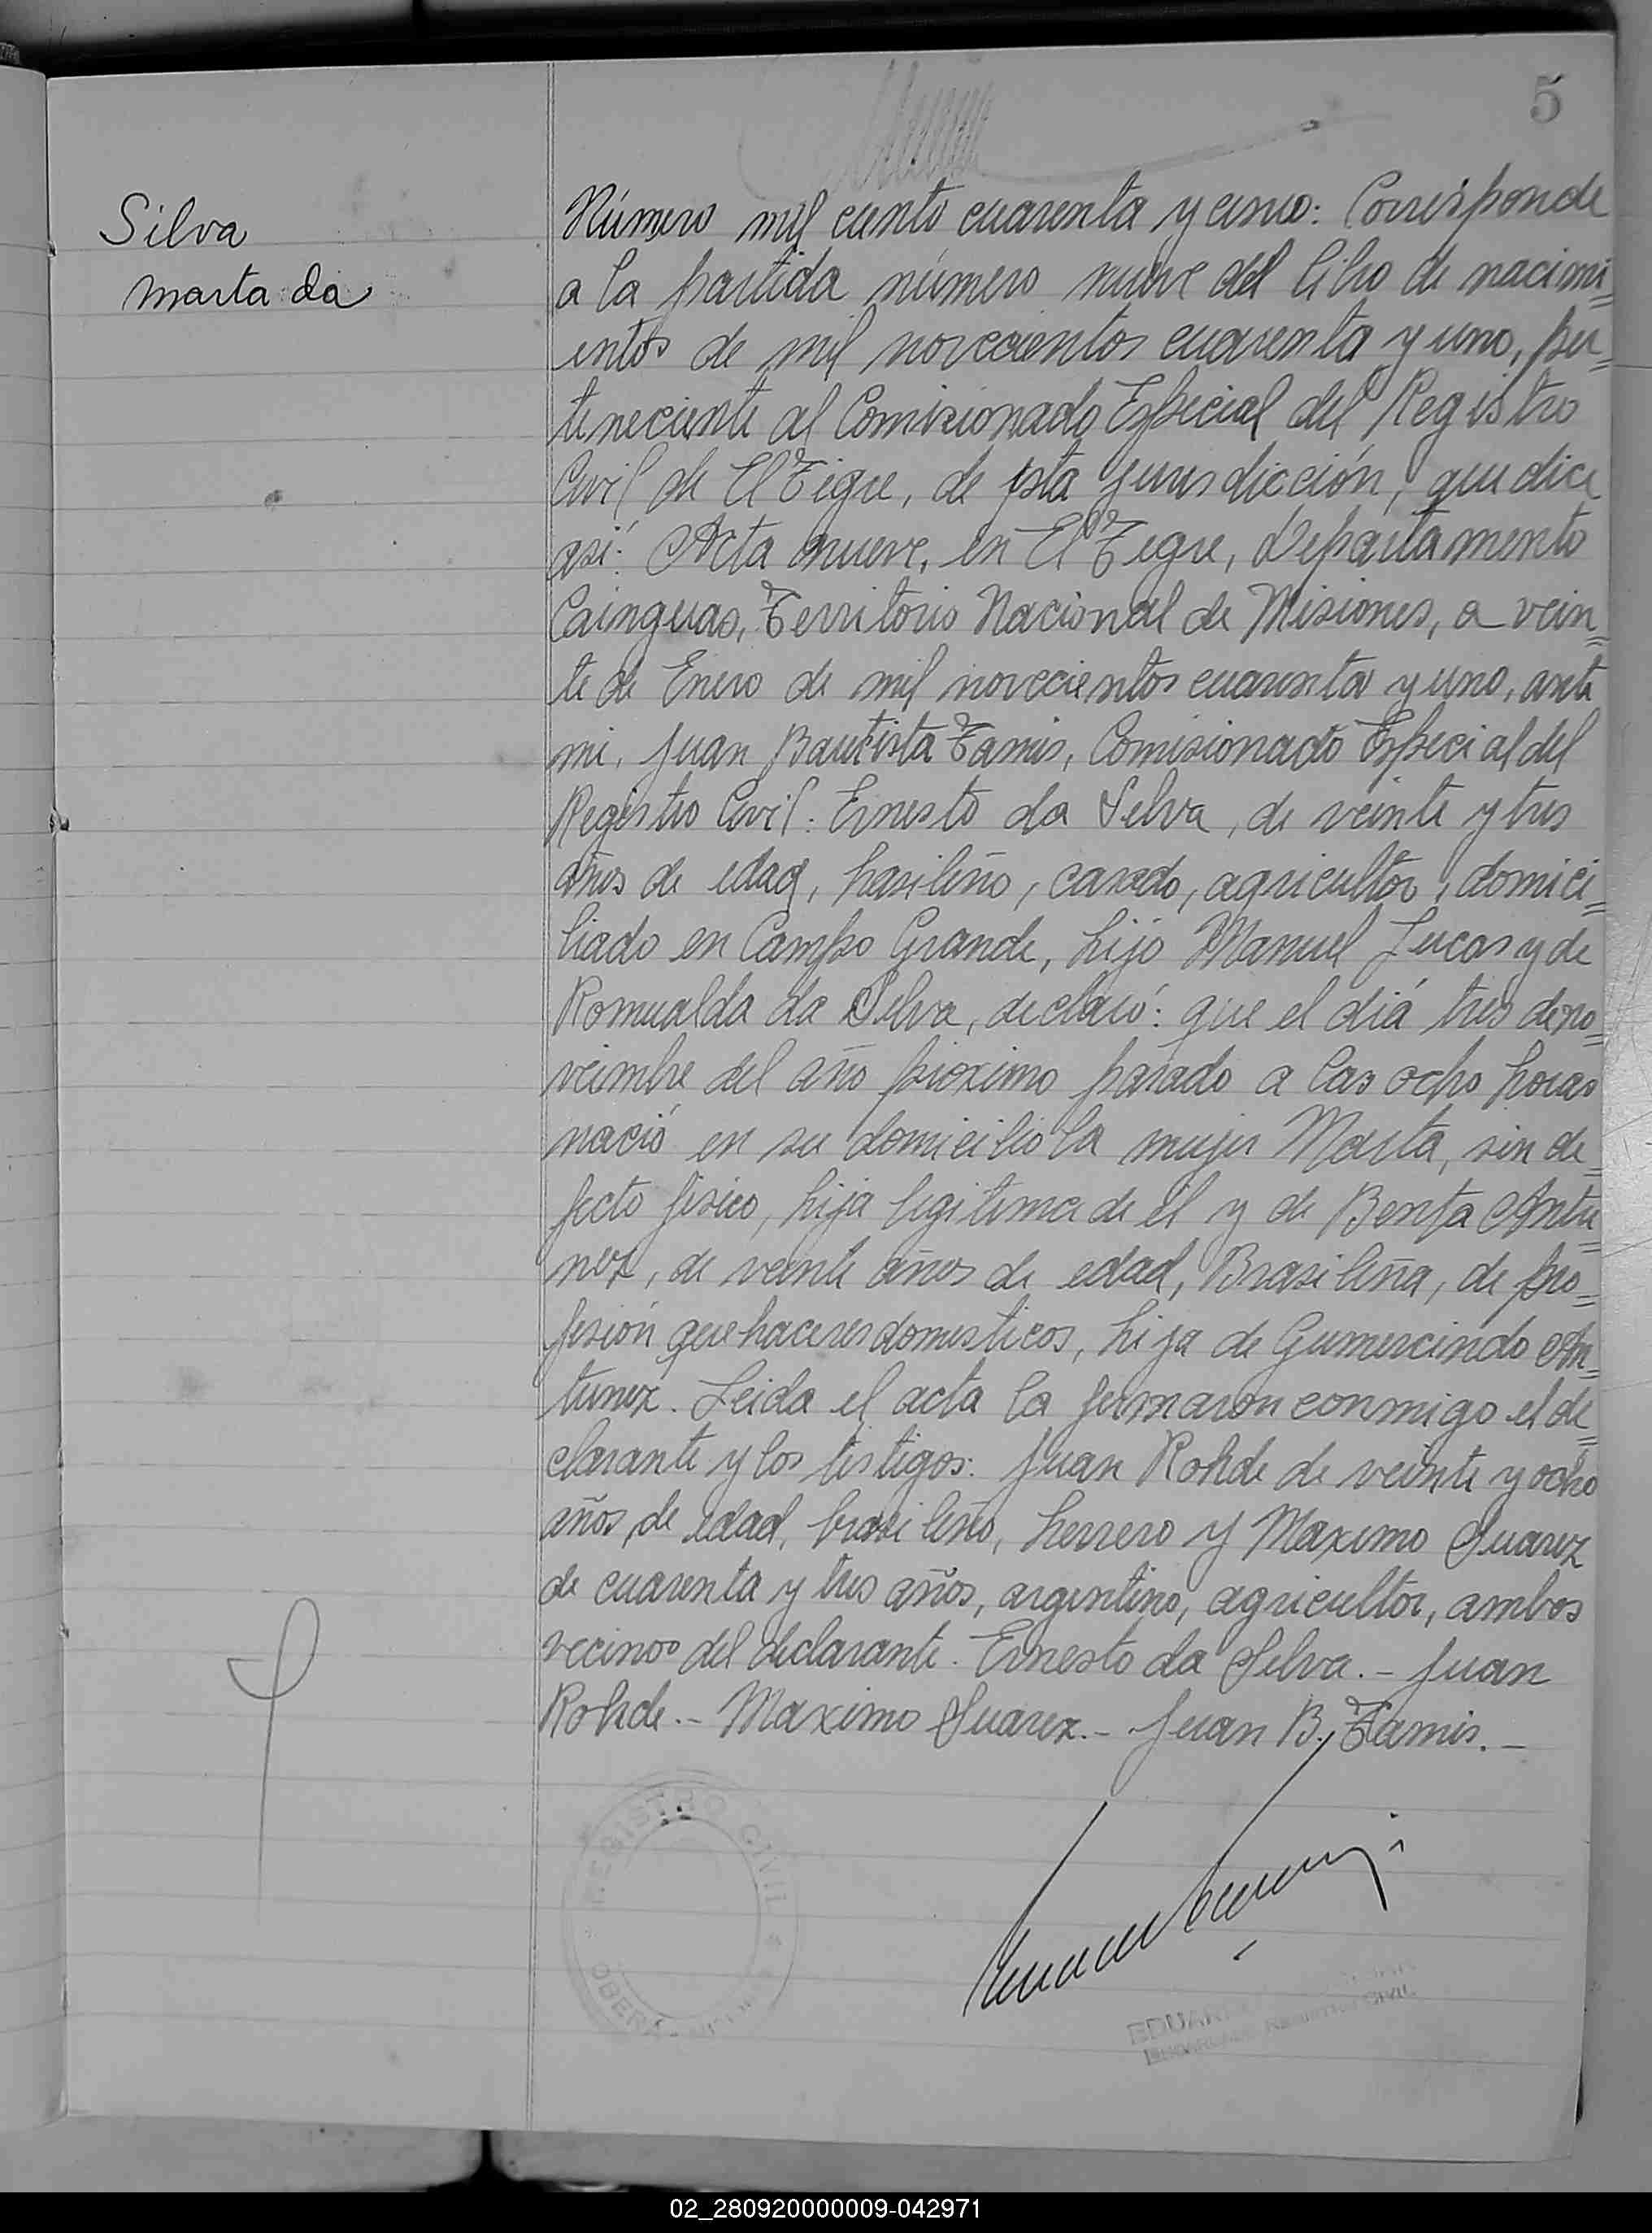 5
Silva
Marta da
Número mil ciento cuarenta y cinco: Corresponde
a la partida número nueve del libro de nacimi=
entos de mil novecientos cuarenta y uno, per=
teneciente al Comisionado Especial del Registro
Civil de El Tigre, de esta jurisdicción, que dice
así: Acta nueve, en El Tigre, Departamento
Cainguas, Territorio Nacional de Misiones, a vein=
te de Enero de mil novecientos cuarenta y uno, ante
mi, Juan Bautista Tamis, Comisionado Especial del
Registro Civil: Ernesto da Silva, de veinte y tres
años de edad, brasileño, casado, agricultor, domici=
liado en Campo Grande, hijo Manuel Lucas y de
Romualda da Silva, declaró: que el diá tres de no=
veimbre del año próximo pasado a las ocho horas
nació en su domicilio la mujer Marta, sin de=
fecto fisico, hija legitima de él y de Benta Antu=
nez, de veinte años de edad, Brasileña, de pro=
fesión quehaceres domesticos, hija de Gumercindo An=
tunez. Leida el acta la firmaron conmigo el de=
clarante y los testigos: Juan Rohde de veinte y ocho
años de edad, brasileño, herrero y Maximo Suarez
de cuarenta y tres años, argentino, agricultor, ambos
vecinos del declarante. Ernesto da Silva.- Juan
Rohde.- Maximo Suarez.- Juan B. Tamis.-
REGISTRO CIVIL
OBERÁ
REGISTRO CIVIL
02_280920000009-042971